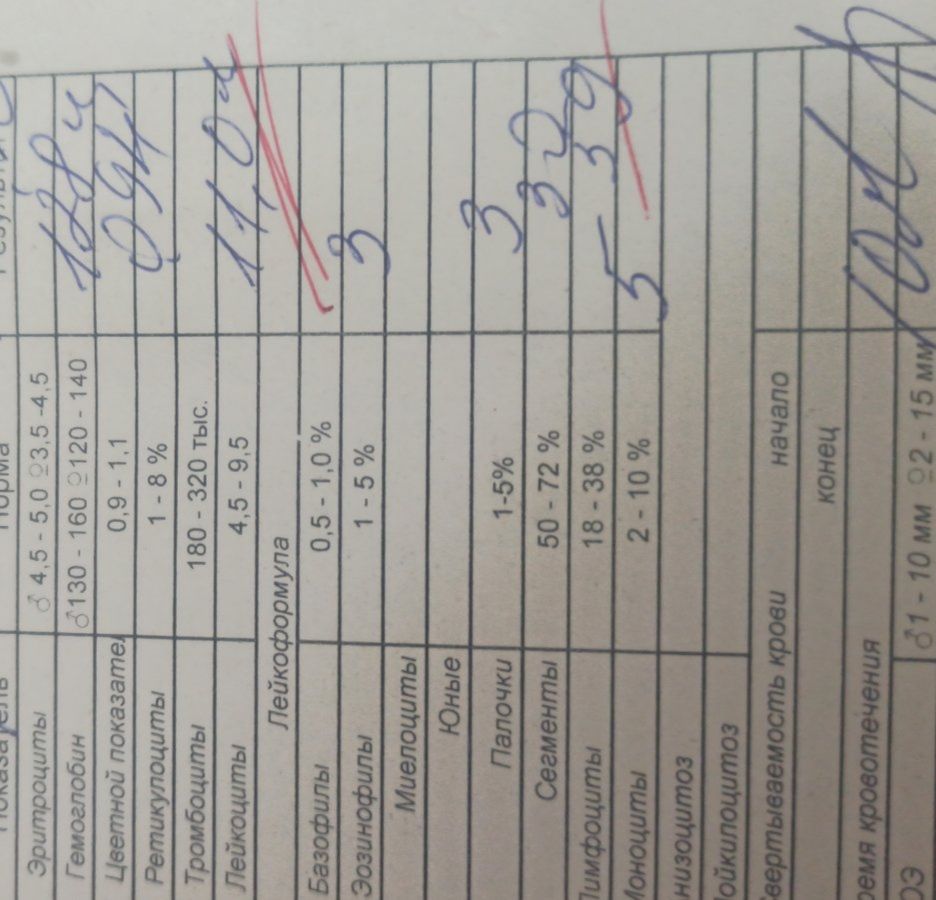 Эритроциты ♂ 4,5 - 5,0 ♀3,5 -4,5
Гемоглобин ♂130 - 160 ♀120 - 140 128
Цветной показател 0,9 - 1,1 0,94
Ретикулоциты 1 - 8 %
Тромбоциты 180 - 320 тыс.
Лейкоциты 4,5 - 9,5 11,0
Лейкоформула
Базофилы 0,5 - 1,0 %
Эозинофилы 1 - 5 % 3
Миелоциты
Юные
Палочки 1-5% 3
Сегменты 50 - 72 %
Лимфоциты 18 - 38 %
Моноциты 2 - 10 % 5
низоцитоз
ойкилоцитоз
вертываемость крови начало
конец
ремя кровотечения
ОЭ ♂1 - 10 мм ♀2 - 15 мм